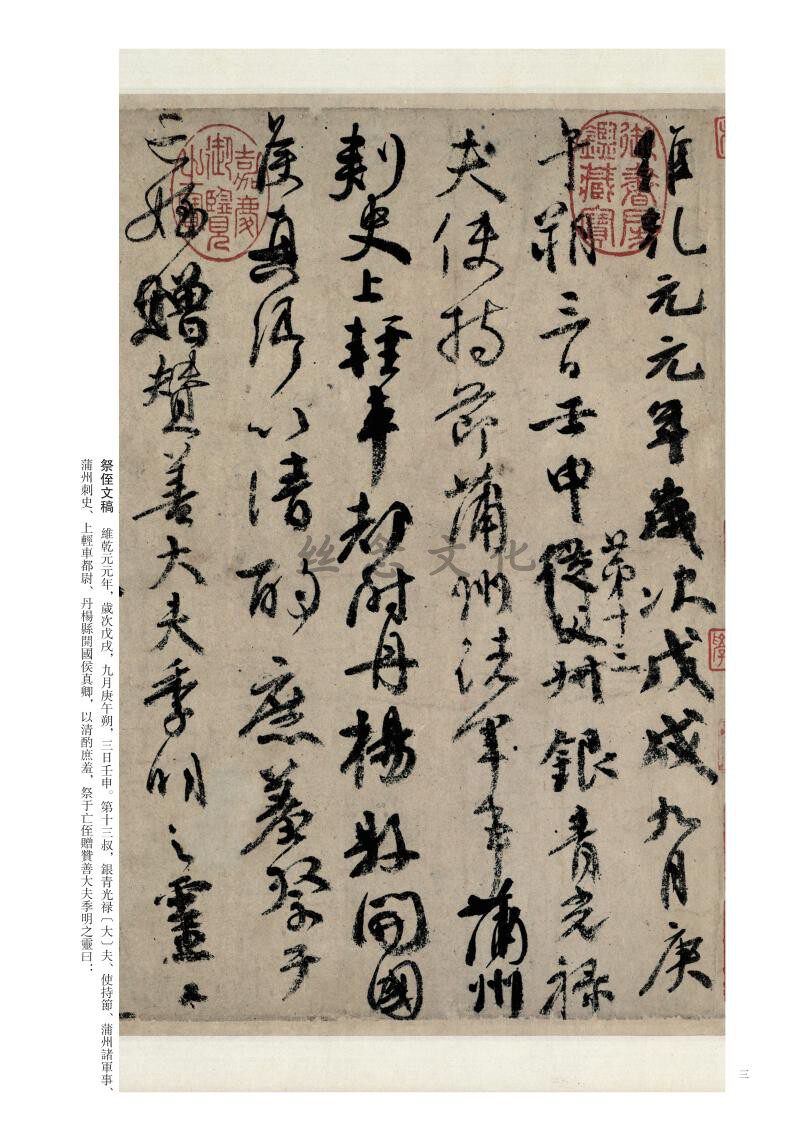 維乾元元年歲次戊戌九月庚
午朔三日壬申第十三叔銀青光禄
夫使持節蒲州諸軍事蒲州
刺史上輕車都尉丹楊縣開國
侯真卿以清酌庶羞祭于
亡姪贈贊善大夫季明之靈曰
御書房鑑藏寶
嘉慶御覽之寶
丝念文化
祭侄文稿 維乾元元年，歲次戊戌，九月庚午朔，三日壬申。第十三叔，銀青光禄〔大〕夫、使持節、蒲州諸軍事、
蒲州刺史、上輕車都尉、丹楊縣開國侯真卿，以清酌庶羞，祭于亡侄贈贊善大夫季明之靈曰：
三